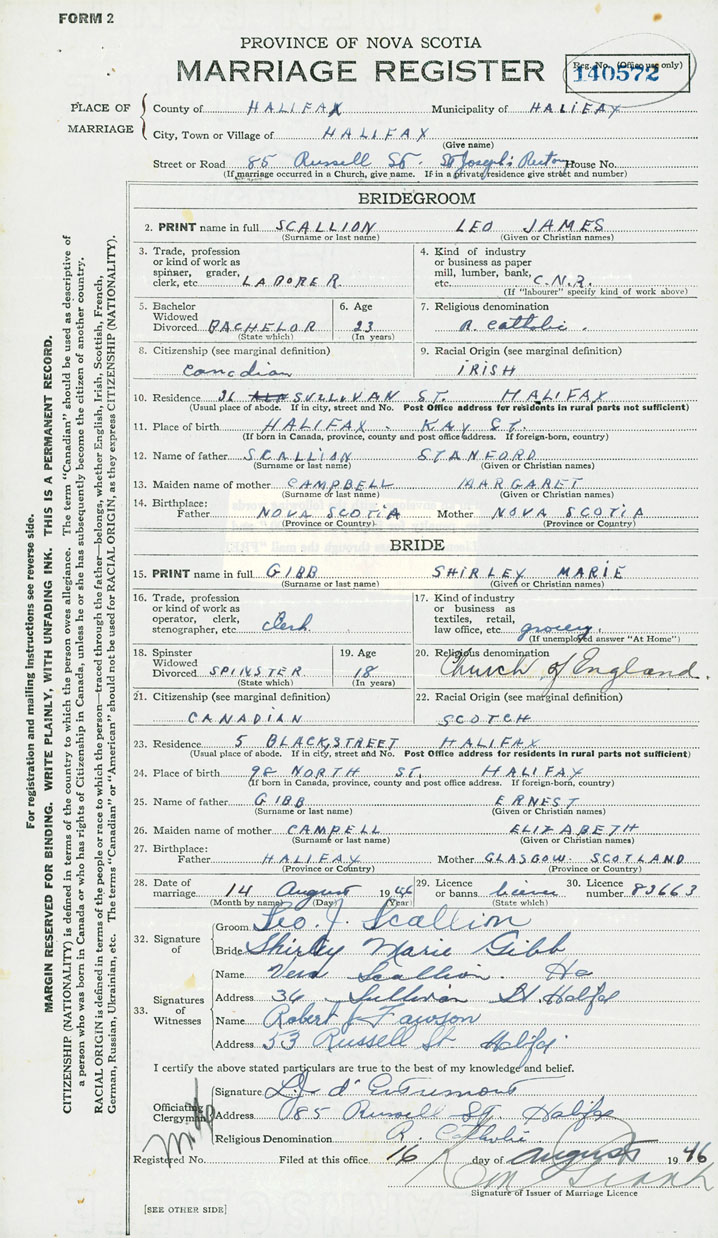 FORM 2
PROVINCE OF NOVA SCOTIA
MARRIAGE REGISTER
Reg. No. (Office use only)
140572
PLACE OF MARRIAGE
County of HALIFAX Municipality of HALIFAX
City, Town or Village of HALIFAX
(Give name)
Street or Road 85 Russell St. St Joseph's House No.
(If marriage occurred in a Church, give name. If in a private residence give street and number)
BRIDEGROOM
2. PRINT name in full SCALLION LEO JAMES
(Surname or last name) (Given or Christian names)
3. Trade, profession or kind of work as spinner, grader, clerk, etc. LABORER
4. Kind of industry or business as paper mill, lumber, bank, etc. C.N.R.
(If "labourer" specify kind of work above)
5. Bachelor Widowed Divorced BACHELOR
(State which)
6. Age 23
(In years)
7. Religious denomination R. Catholic.
8. Citizenship (see marginal definition) Canadian
9. Racial Origin (see marginal definition) IRISH
10. Residence 36 SULLIVAN ST. HALIFAX
(Usual place of abode. If in city, street and No. Post Office address for residents in rural parts not sufficient)
11. Place of birth HALIFAX - KAY ST.
(If born in Canada, province, county and post office address. If foreign-born, country)
12. Name of father SCALLION STANFORD
(Surname or last name) (Given or Christian names)
13. Maiden name of mother CAMPBELL MARGARET
(Surname or last name) (Given or Christian names)
14. Birthplace:
Father NOVA SCOTIA Mother NOVA SCOTIA
(Province or Country) (Province or Country)
BRIDE
15. PRINT name in full GIBB SHIRLEY MARIE
(Surname or last name) (Given or Christian names)
16. Trade, profession or kind of work as operator, clerk, stenographer, etc. Clerk
17. Kind of industry or business as textiles, retail, law office, etc. grocery.
(If unemployed answer "At Home")
18. Spinster Widowed Divorced SPINSTER
(State which)
19. Age 18
(In years)
20. Religious denomination Church of England.
21. Citizenship (see marginal definition) CANADIAN
22. Racial Origin (see marginal definition) SCOTCH
23. Residence 5 BLACK STREET HALIFAX
(Usual place of abode. If in city, street and No. Post Office address for residents in rural parts not sufficient)
24. Place of birth 98 NORTH ST. HALIFAX
(If born in Canada, province, county and post office address. If foreign-born, country)
25. Name of father GIBB ERNEST
(Surname or last name) (Given or Christian names)
26. Maiden name of mother CAMPELL ELIZABETH
(Surname or last name) (Given or Christian names)
27. Birthplace:
Father HALIFAX Mother GLASGOW SCOTLAND
(Province or Country) (Province or Country)
28. Date of marriage 14 August 1946
(Month by name) (Day) (Year)
29. Licence or banns licence
(State which)
30. Licence number 83663
32. Signature of
Groom Leo. J. Scallion
Bride Shirley Marie Gibb
33. Signatures of Witnesses
Name Vera Scallion.
Address 36 Sullivan St Halifax
Name Robert J Lawson
Address 53 Russell St. Halifax
I certify the above stated particulars are true to the best of my knowledge and belief.
Officiating Clergyman
Signature d'Entremont
Address 85 Russell St. Halifax
Religious Denomination R. Catholic
Registered No. Filed at this office 16 day of August 1946
Signature of Issuer of Marriage Licence
[SEE OTHER SIDE]
For registration and mailing instructions see reverse side.
MARGIN RESERVED FOR BINDING. WRITE PLAINLY, WITH UNFADING INK. THIS IS A PERMANENT RECORD.
CITIZENSHIP (NATIONALITY) is defined in terms of the country to which the person owes allegiance. The term "Canadian" should be used as descriptive of
a person who was born in Canada or who has rights of Citizenship in Canada, unless he or she has subsequently become the citizen of another country.
RACIAL ORIGIN is defined in terms of the people or race to which the person—traced through the father—belongs, whether English, Irish, Scottish, French,
German, Russian, Ukrainian, etc. The terms "Canadian" or "American" should not be used for RACIAL ORIGIN, as they express CITIZENSHIP (NATIONALITY).